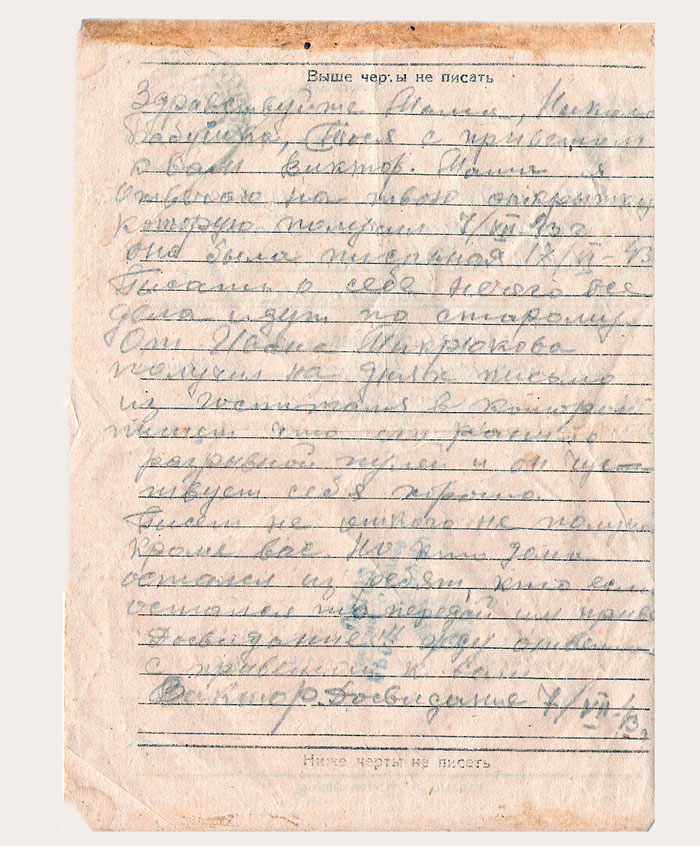 Выше черты не писать
Здравствуйте Мама,
Бабушка, Тося с приветом
к вам Виктор. Мама я
отвечаю на твою открытку
которую получил 7/VII-43 г
она была писанная 17/VI-43
Писать о себе нечего все
дела идут по старому.
От Ивана Микрюкова
получил на днях письмо
из госпиталя в котором
пишет что его ранило
разрывной пулей и он чус-
твует себя хорошо.
Писем не от кого не получаю
кроме вас. Но кто дома
остался из ребят, кто если
остался то передай им привет
Досвидание жду ответа
с приветом к вам
Виктор. Досвидания 7/VII-43г
Ниже черты не писать